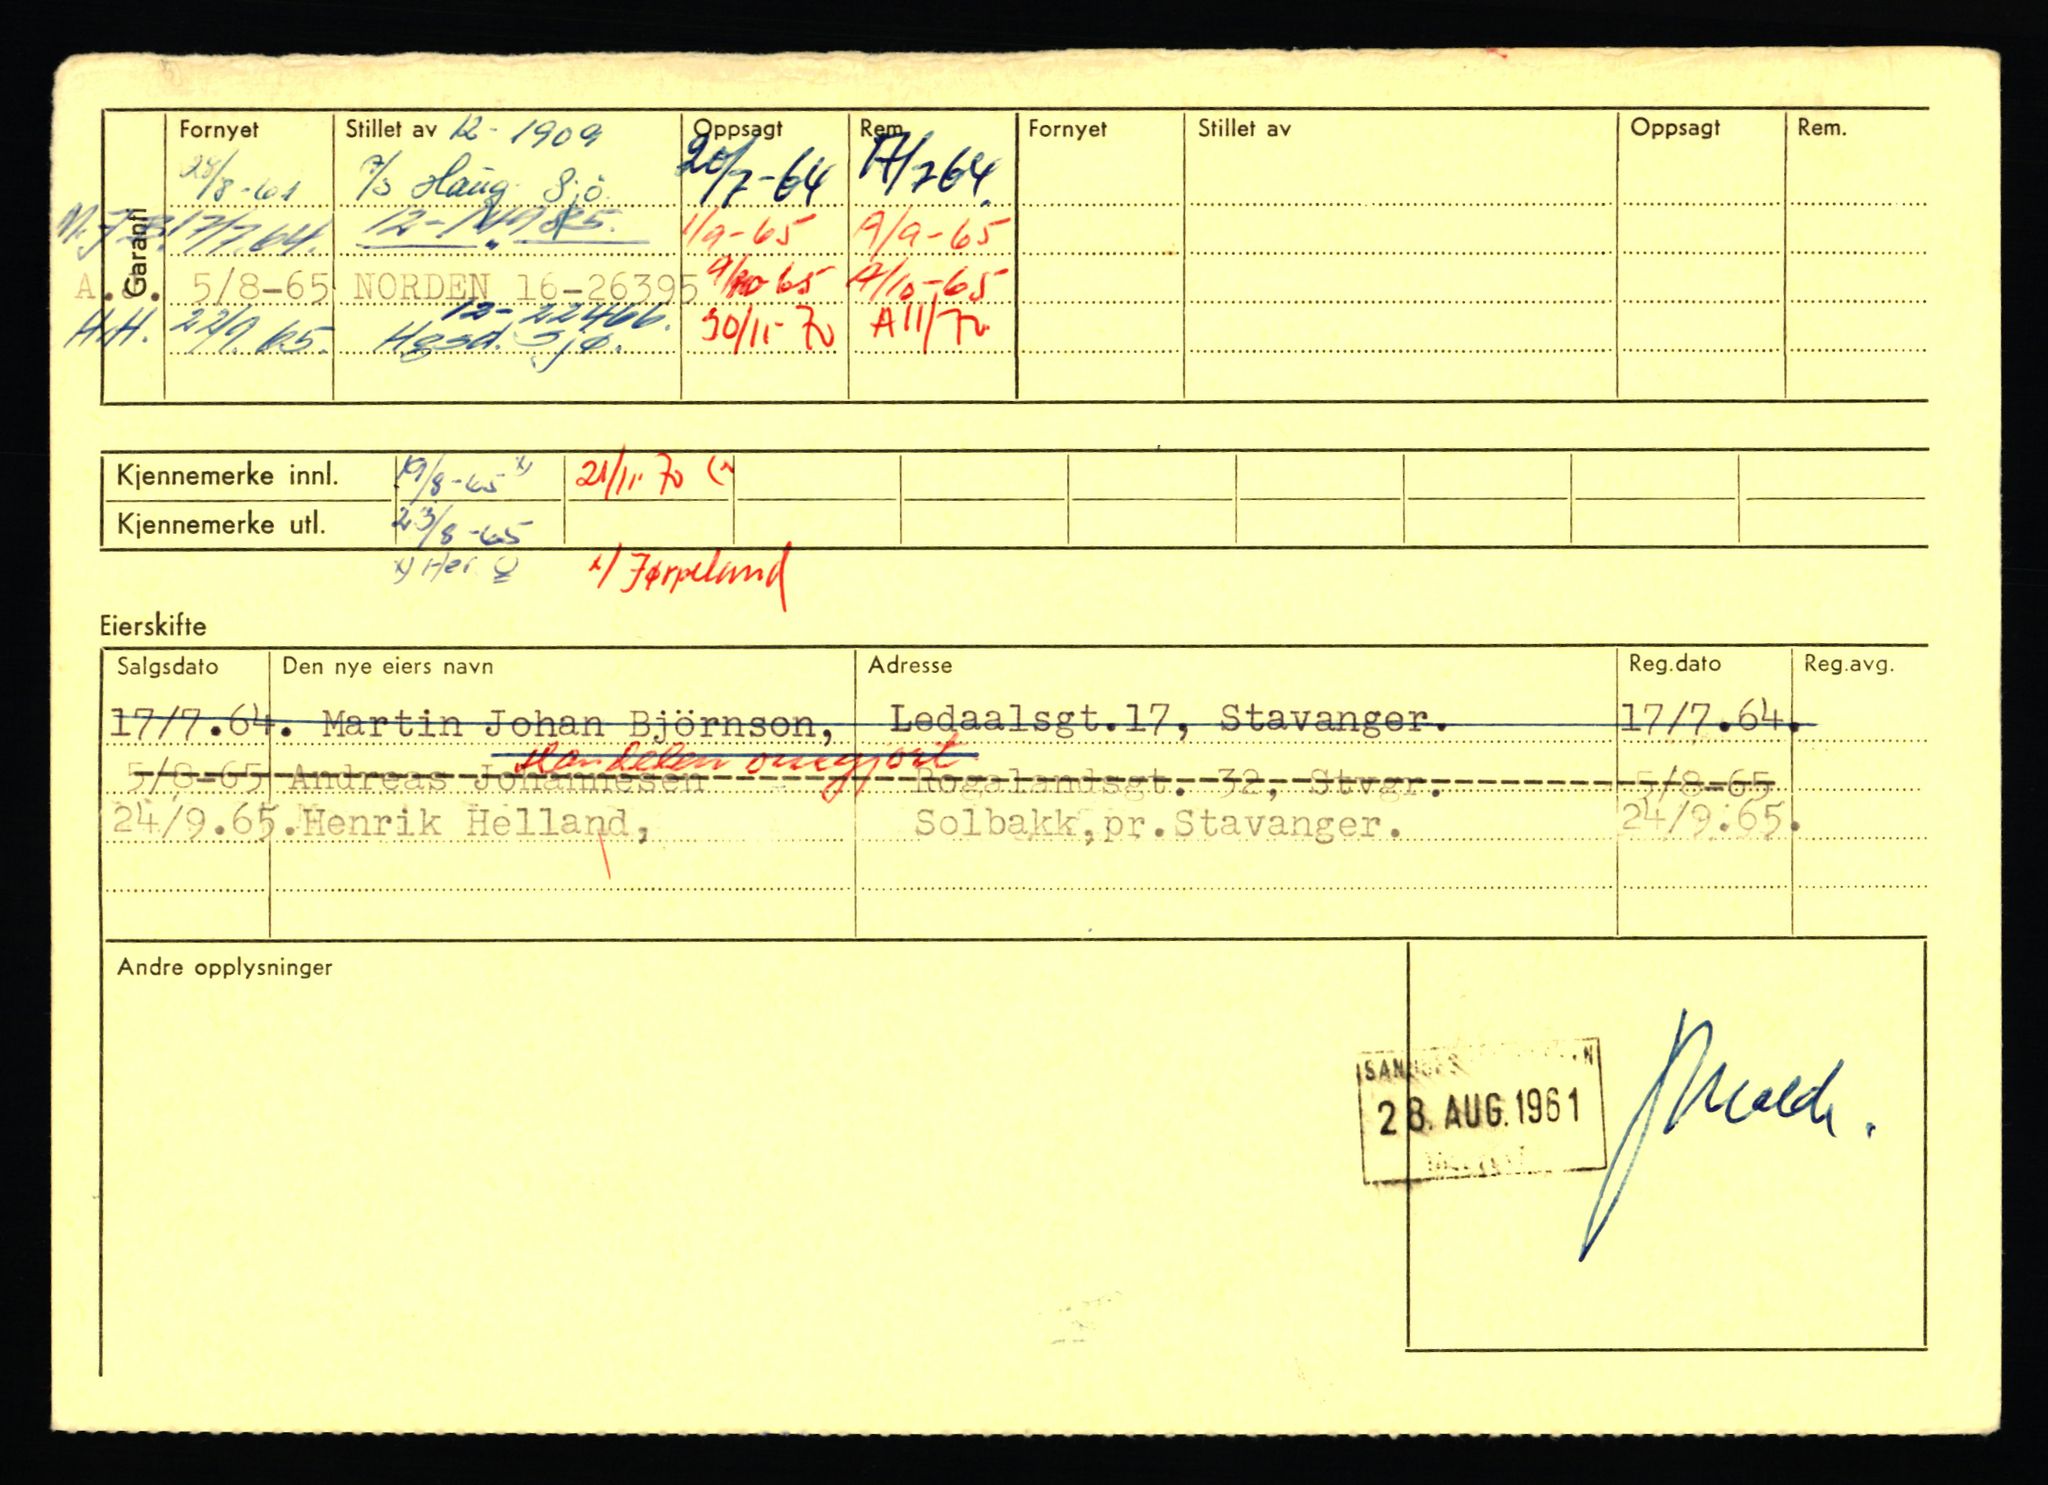 Garanti
Fornyet Stillet av 12-1909 Oppsagt Rem. Fornyet Stillet av Oppsagt Rem.
28/8-61 A/S Haug. Sjö. 20/7-64 17/7 64.
M.J.B. 17/7.64. 1/9-65 A/9-65
A.J. 5/8-65 NORDEN 16-26395 9/10 65 A/10-65
H.H. 22/9.65. 12-22466. Hgsd. Sjø. 30/11-70 A11/70
Kjennemerke innl. 19/8-65 x) 21/11-70
Kjennemerke utl. 23/8-65
x) Her x/ Jørpeland
Eierskifte
Salgsdato Den nye eiers navn Adresse Reg.dato Reg.avg.
17/7.64. Martin Johan Björnson, Ledaalsgt.17, Stavanger. 17/7.64.
Handelen omgjort
5/8-65 Andreas Johannesen Rogalandsgt. 32, Stvgr. 5/8-65
24/9.65. Henrik Helland, Solbakk,pr.Stavanger. 24/9.65.
Andre opplysninger
28. AUG. 1961